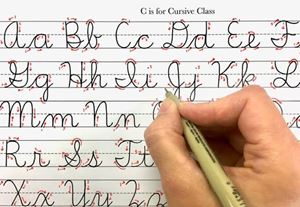 C is for Cursive Class
Aa Bb Cc Dd Ee F
Gg Hh Ii Jj Kk L
Mm Nn
Rr Ss Tt
Xx Yy Z